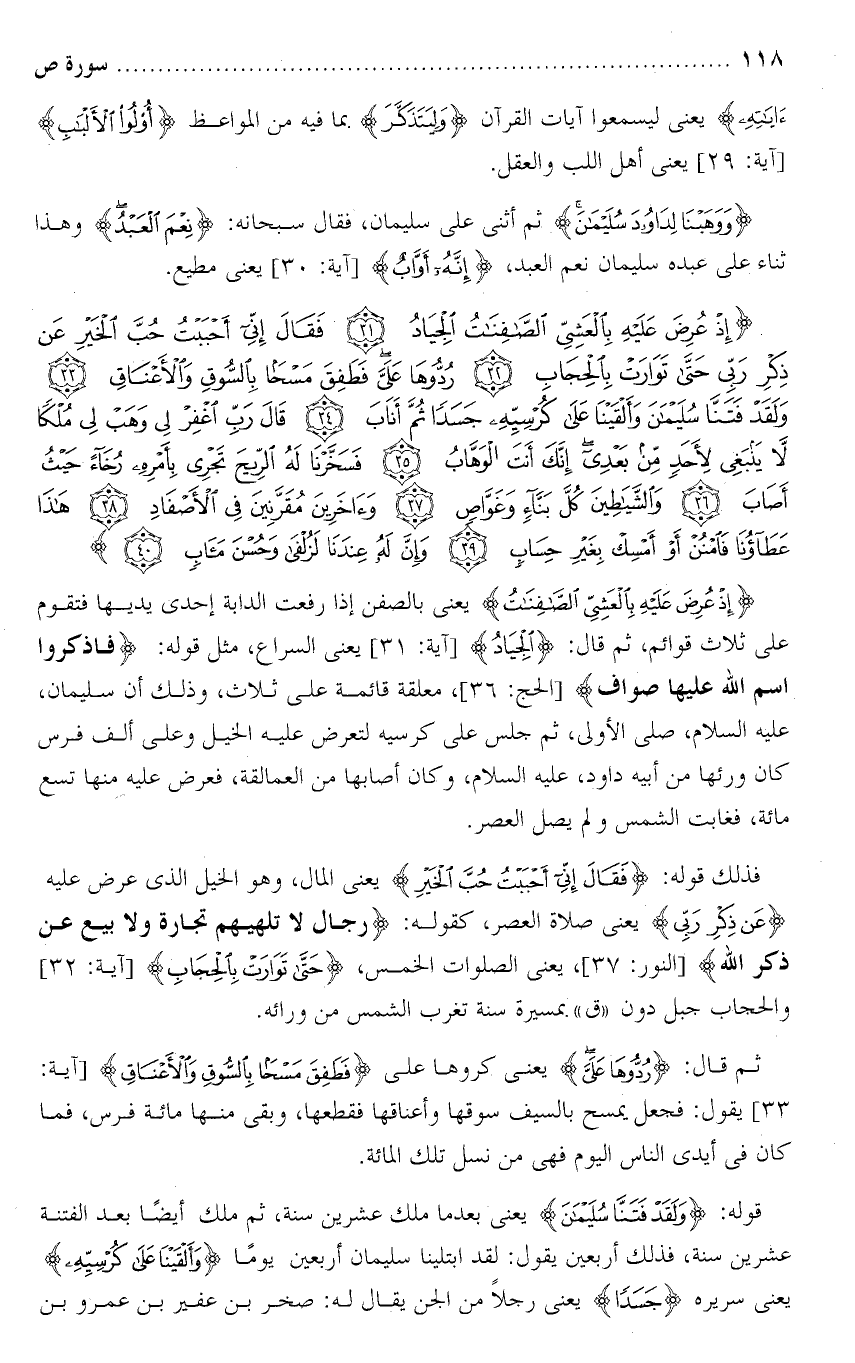 ١١٨ ........................................................................ سورة ص
ءَايَٰتِهِۦ﴾ يعنى ليسمعوا آيات القرآن ﴿وَلِيَتَذَكَّرَ﴾ بما فيه من المواعظ ﴿أُوْلُواْ ٱلْأَلْبَٰبِ﴾
[آية: ٢٩] يعنى أهل اللب والعقل.
﴿وَوَهَبْنَا لِدَاوُۥدَ سُلَيْمَٰنَۚ﴾ ثم أثنى على سليمان، فقال سبحانه: ﴿نِعْمَ ٱلْعَبْدُۖ﴾ وهذا
ثناء على عبده سليمان نعم العبد، ﴿إِنَّهُۥٓ أَوَّابٌ﴾ [آية: ٣٠] يعنى مطيع.
﴿إِذْ عُرِضَ عَلَيْهِ بِٱلْعَشِىِّ ٱلصَّٰفِنَٰتُ ٱلْجِيَادُ ٣١ فَقَالَ إِنِّىٓ أَحْبَبْتُ حُبَّ ٱلْخَيْرِ عَن
ذِكْرِ رَبِّى حَتَّىٰ تَوَارَتْ بِٱلْحِجَابِ ٣٢ رُدُّوهَا عَلَىَّۖ فَطَفِقَ مَسْحًۢا بِٱلسُّوقِ وَٱلْأَعْنَاقِ ٣٣
وَلَقَدْ فَتَنَّا سُلَيْمَٰنَ وَأَلْقَيْنَا عَلَىٰ كُرْسِيِّهِۦ جَسَدًا ثُمَّ أَنَابَ ٣٤ قَالَ رَبِّ ٱغْفِرْ لِى وَهَبْ لِى مُلْكًا
لَّا يَنۢبَغِى لِأَحَدٍ مِّنۢ بَعْدِىٓۖ إِنَّكَ أَنتَ ٱلْوَهَّابُ ٣٥ فَسَخَّرْنَا لَهُ ٱلرِّيحَ تَجْرِى بِأَمْرِهِۦ رُخَآءً حَيْثُ
أَصَابَ ٣٦ وَٱلشَّيَٰطِينَ كُلَّ بَنَّآءٍ وَغَوَّاصٍ ٣٧ وَءَاخَرِينَ مُقَرَّنِينَ فِى ٱلْأَصْفَادِ ٣٨ هَٰذَا
عَطَآؤُنَا فَٱمْنُنْ أَوْ أَمْسِكْ بِغَيْرِ حِسَابٍ ٣٩ وَإِنَّ لَهُۥ عِندَنَا لَزُلْفَىٰ وَحُسْنَ مَـَٔابٍ ٤٠ ﴾
﴿إِذْ عُرِضَ عَلَيْهِ بِٱلْعَشِىِّ ٱلصَّٰفِنَٰتُ﴾ يعنى بالصفن إذا رفعت الدابة إحدى يديها فتقوم
على ثلاث قوائم، ثم قال: ﴿ٱلْجِيَادُ﴾ [آية: ٣١] يعنى السراع، مثل قوله: ﴿فاذكروا
اسم الله عليها صواف﴾ [الحج: ٣٦]، معلقة قائمة على ثلاث، وذلك أن سليمان،
عليه السلام، صلى الأولى، ثم جلس على كرسيه لتعرض عليه الخيل وعلى ألف فرس
كان ورثها من أبيه داود، عليه السلام، وكان أصابها من العمالقة، فعرض عليه منها تسع
مائة، فغابت الشمس و لم يصل العصر.
فذلك قوله: ﴿فَقَالَ إِنِّىٓ أَحْبَبْتُ حُبَّ ٱلْخَيْرِ﴾ يعنى المال، وهو الخيل الذى عرض عليه
﴿عَن ذِكْرِ رَبِّى﴾ يعنى صلاة العصر، كقوله: ﴿رجال لا تلهيهم تجارة ولا بيع عن
ذكر الله﴾ [النور: ٣٧]، يعنى الصلوات الخمس، ﴿حَتَّىٰ تَوَارَتْ بِٱلْحِجَابِ﴾ [آية: ٣٢]
والحجاب جبل دون «ق» بمسيرة سنة تغرب الشمس من ورائه.
ثم قال: ﴿رُدُّوهَا عَلَىَّۖ﴾ يعنى كروها على ﴿فَطَفِقَ مَسْحًۢا بِٱلسُّوقِ وَٱلْأَعْنَاقِ﴾ [آية:
٣٣] يقول: فجعل يمسح بالسيف سوقها وأعناقها فقطعها، وبقى منها مائة فرس، فما
كان فى أيدى الناس اليوم فهى من نسل تلك المائة.
قوله: ﴿وَلَقَدْ فَتَنَّا سُلَيْمَٰنَ﴾ يعنى بعدما ملك عشرين سنة، ثم ملك أيضًا بعد الفتنة
عشرين سنة، فذلك أربعين يقول: لقد ابتلينا سليمان أربعين يومًا ﴿وَأَلْقَيْنَا عَلَىٰ كُرْسِيِّهِۦ﴾
يعنى سريره ﴿جَسَدًا﴾ يعنى رجلاً من الجن يقال له: صخر بن عفير بن عمرو بن